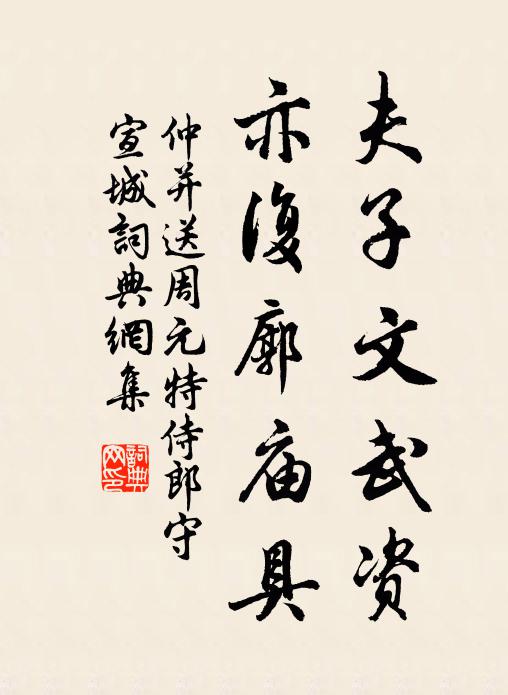 夫子文武资
亦復廓庙具
仲并送周元特侍郎守
宣城詞典網集
詞典网印